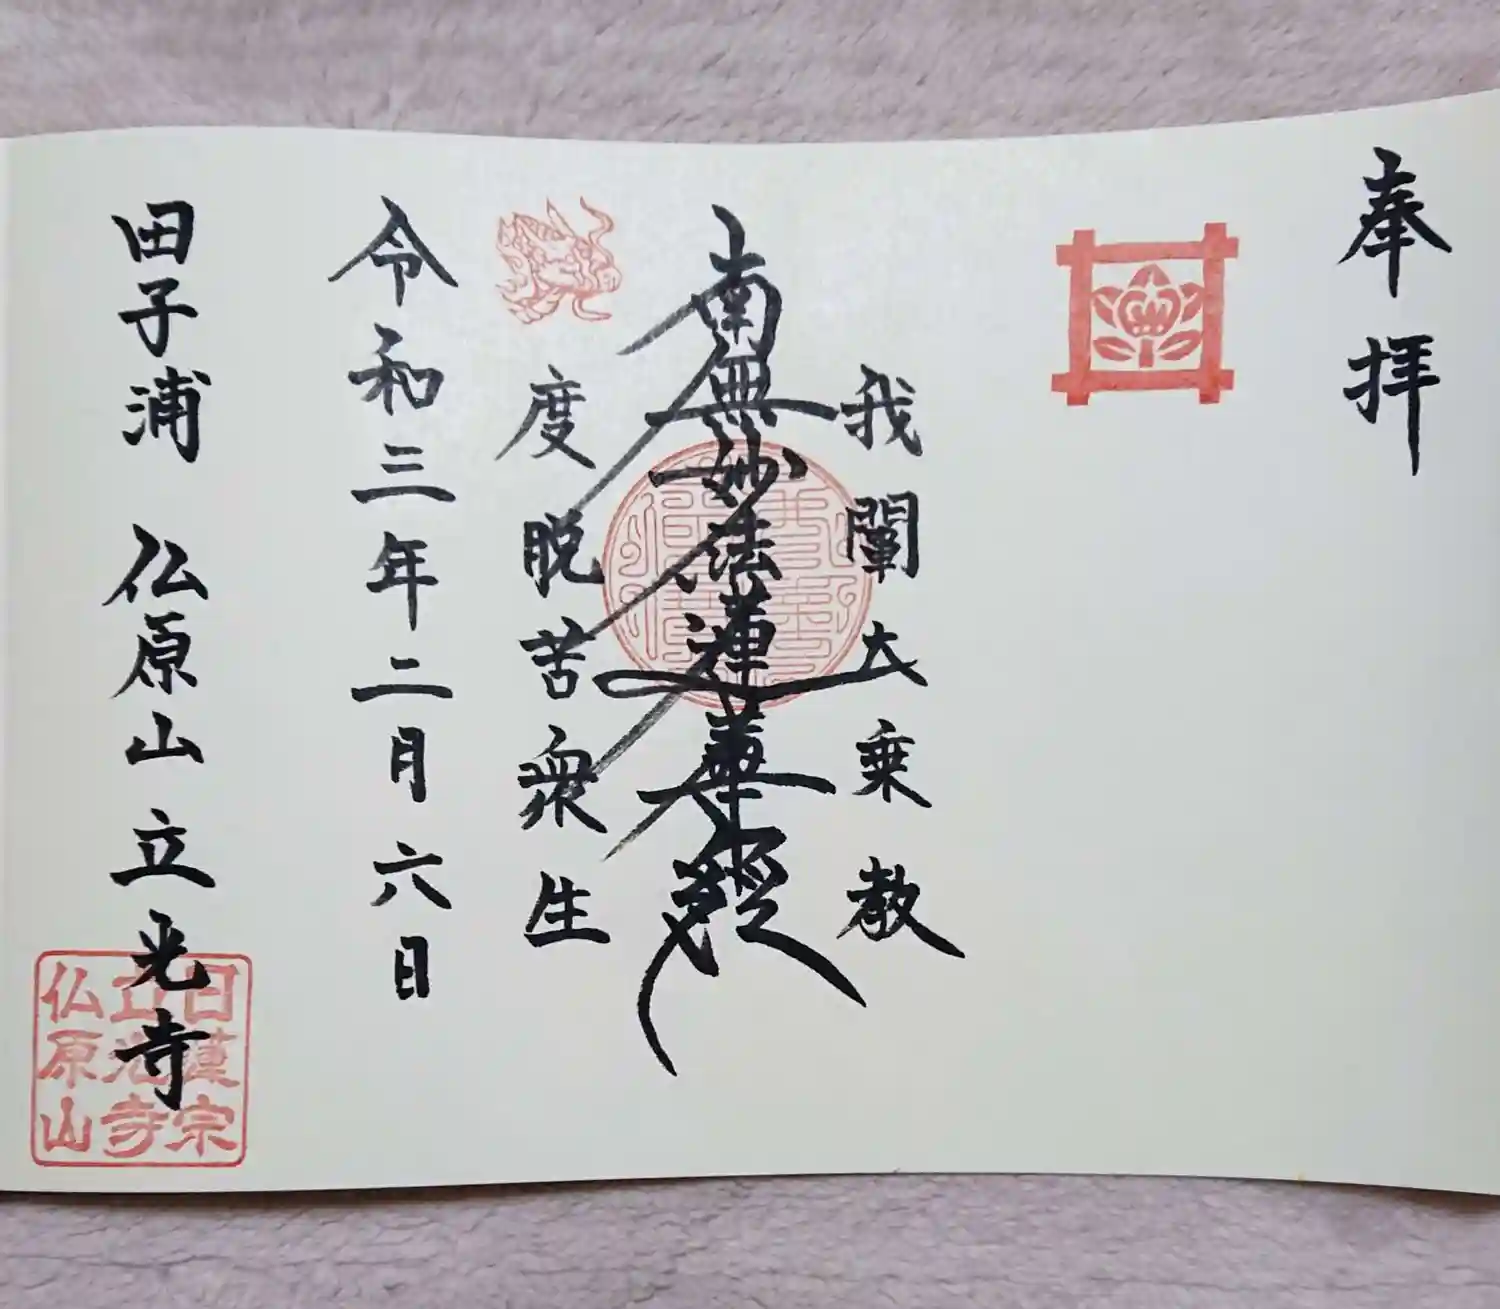 奉拝
我闡大乗教
南無妙法蓮華経
度脱苦衆生
令和三年二月六日
田子浦 仏原山立光寺
日蓮宗
立光寺
仏原山